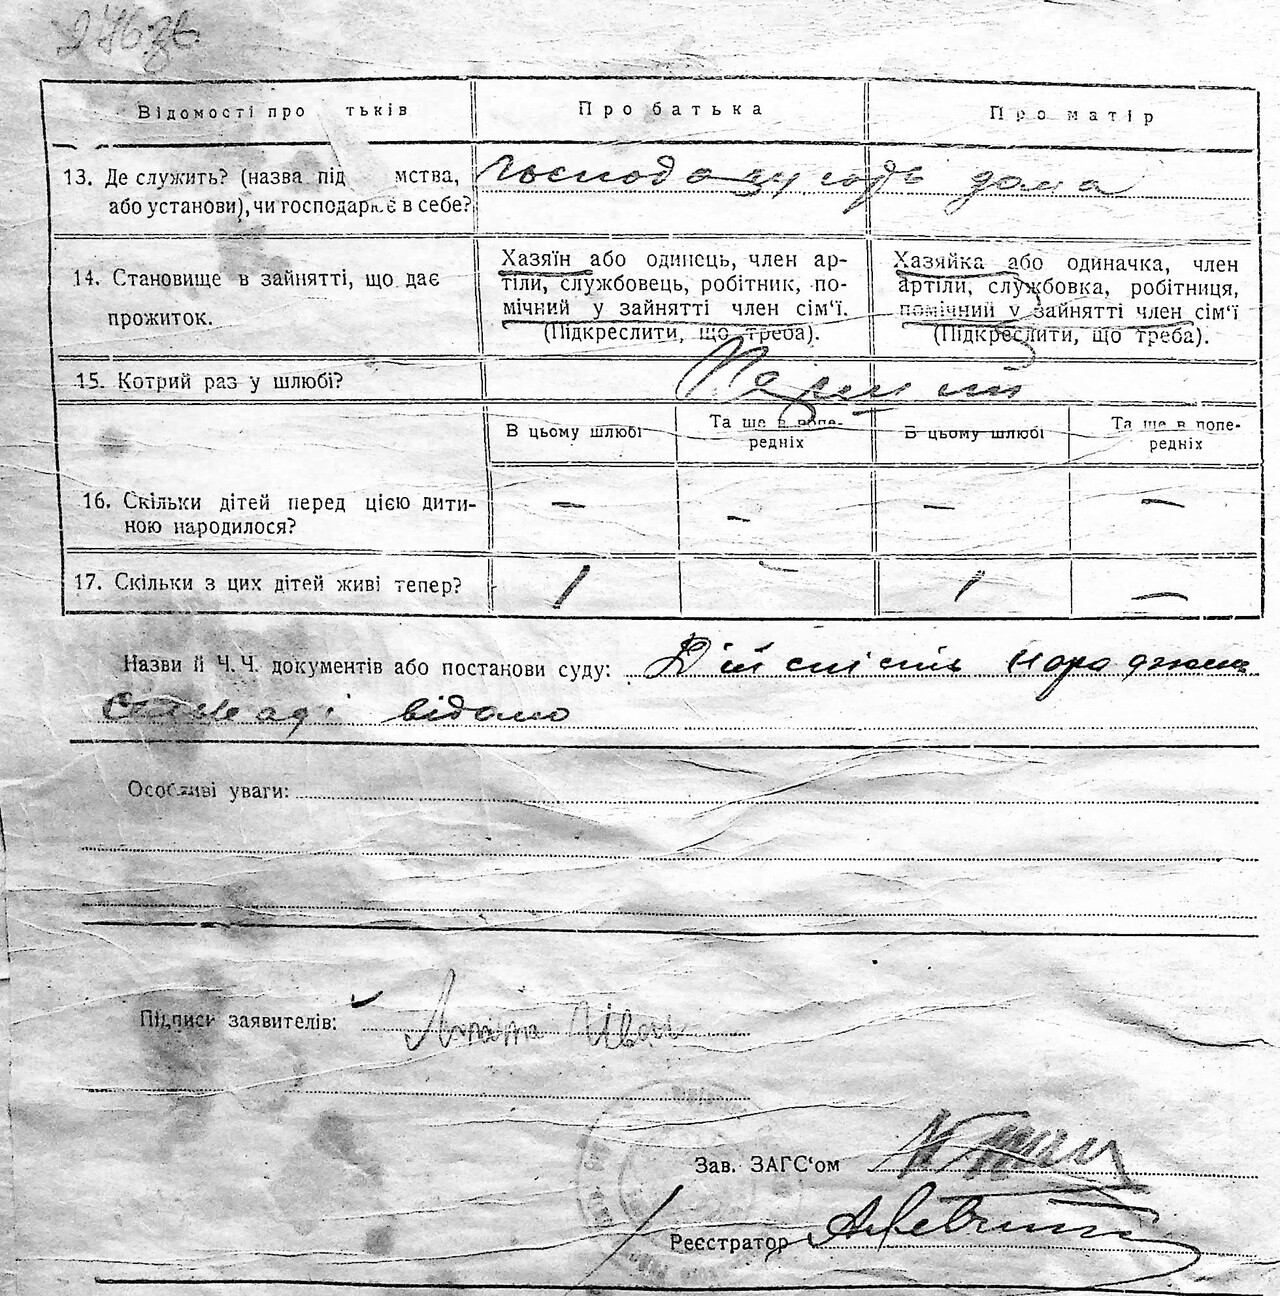 246 зв.
Відомості про тьків
Про батька
Про матір
13. Де служить? (назва під мства,
або установи), чи господарює в себе?
Господарують дома
14. Становище в зайнятті, що дає
прожиток.
Хазяїн або одинець, член ар-
тіли, службовець, робітник, по-
мічний у зайнятті член сім'ї.
(Підкреслити, що треба).
Хазяйка або одиначка, член
артіли, службовка, робітниця,
помічний у зайнятті член сім'ї
(Підкреслити, що треба).
15. Котрий раз у шлюбі?
Перший
В цьому шлюбі
Та ще в попе-
редніх
В цьому шлюбі
Та ще в попе-
редніх
16. Скільки дітей перед цією дити-
ною народилося?
— — — —
17. Скільки з цих дітей живі тепер?
1 — 1 —
Назви й Ч.Ч. документів або постанови суду: Дійсність народження
сільраді відомо
Особливі уваги:
Підписи заявителів: Іван
Зав. ЗАГС'ом
Реєстратор